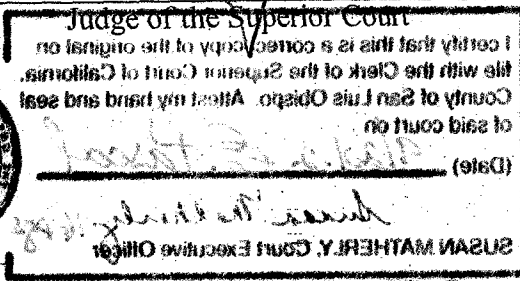 Judge of the Superior Court
I certify that this is a correct copy of the original on
file with the Clerk of the Superior Court of California,
County of San Luis Obispo. Attest my hand and seal
of said court on
(Date)
SUSAN MATHERLY, Court Executive Officer